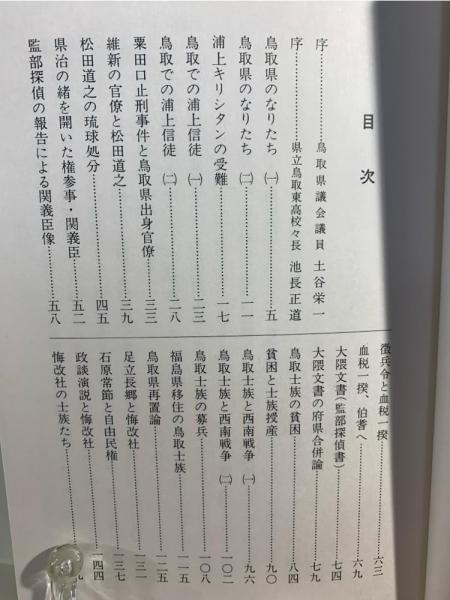 目次
序……………鳥取県議会議員 土谷栄一
序……………県立鳥取東高校々長 池長正道
鳥取県のなりたち ㈠……………五
鳥取県のなりたち ㈡……………一一
浦上キリシタンの受難……………一七
鳥取での浦上信徒 ㈠……………二三
鳥取での浦上信徒 ㈡……………二八
粟田口止刑事件と鳥取県出身官僚……………三三
維新の官僚と松田道之……………三九
松田道之の琉球処分……………四五
県治の緒を開いた権参事・関義臣……………五二
監部探偵の報告による関義臣像……………五八
徴兵令と血税一揆……………六三
血税一揆、伯耆へ……………六九
大隈文書(監部探偵書)……………七四
大隈文書の府県合併論……………七九
鳥取士族の貧困……………八四
貧困と士族授産……………九〇
鳥取士族と西南戦争 ㈠……………九六
鳥取士族と西南戦争 ㈡……………一〇二
鳥取士族の募兵……………一〇八
福島県移住の鳥取士族……………一一五
鳥取県再置論……………一二五
足立長郷と悔改社……………一三一
石原常節と自由民権……………一三七
政談演説と悔改社……………一四四
悔改社の士族たち……………九